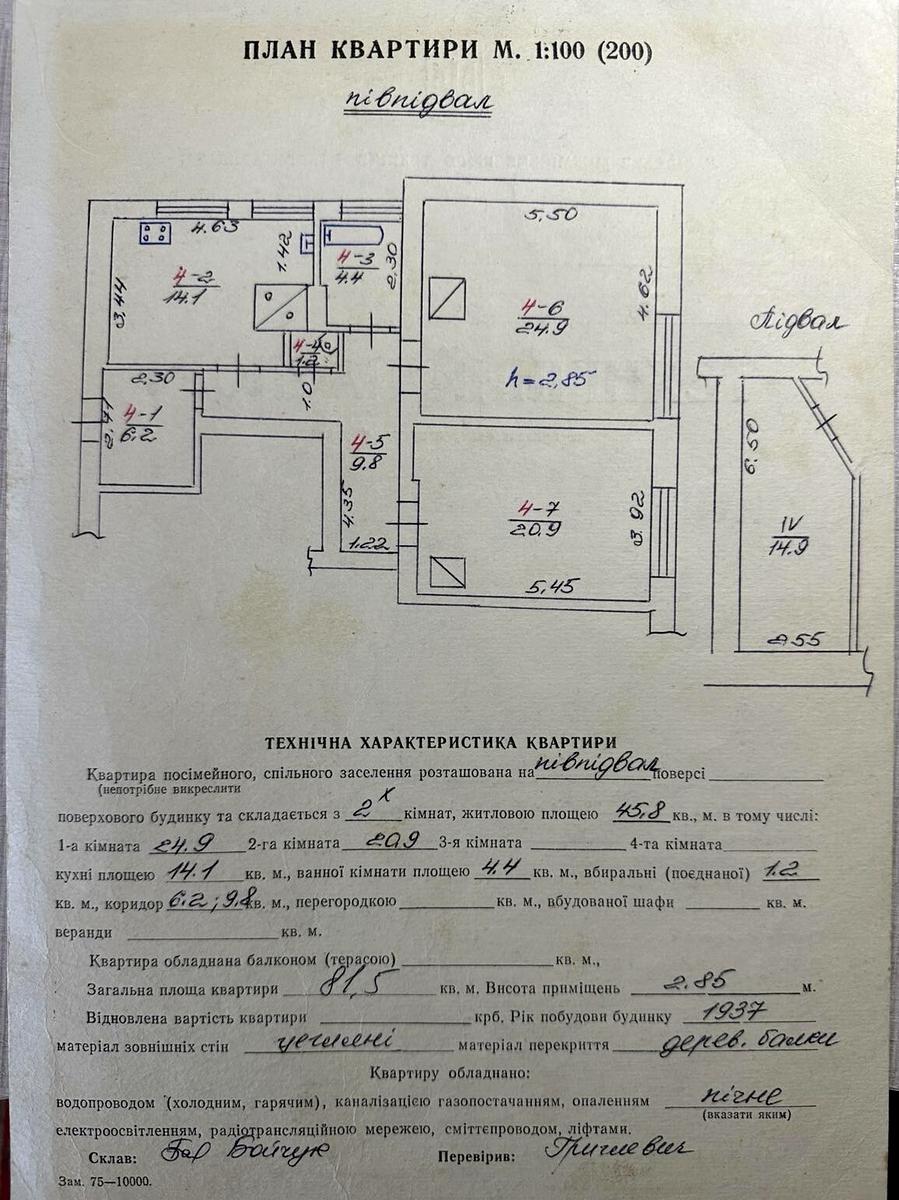 ПЛАН КВАРТИРИ М. 1:100 (200)
півпідвал
4.63
1.42
4-3
4.4
2.30
4-2
14.1
3.44
5.50
4-6
24.9
4.62
h=2,85
4-4
1.2
2,30
1.0
4-1
6.2
2.41
4-5
9.8
4.35
1.22
4-7
20.9
3.92
5,45
Підвал
6.50
IV
14.9
2.55
ТЕХНІЧНА ХАРАКТЕРИСТИКА КВАРТИРИ
Квартира посімейного, спільного заселення розташована на півпідвал поверсі
(непотрібне викреслити
поверхового будинку та складається з 2х кімнат, житловою площею 45,8 кв., м. в тому числі:
1-а кімната 24.9 2-га кімната 20.9 3-я кімната 4-та кімната
кухні площею 14.1 кв. м., ванної кімнати площею 4.4 кв. м., вбиральні (поєднаної) 1.2
кв. м., коридор 6.2; 9.8 кв. м., перегородкою кв. м., вбудованої шафи кв. м.
веранди кв. м.
Квартира обладнана балконом (терасою) кв. м.,
Загальна площа квартири 81,5 кв. м. Висота приміщень 2.85 м.
Відновлена вартість квартири крб. Рік побудови будинку 1937
матеріал зовнішніх стін цегляні матеріал перекриття дерев. балки
Квартиру обладнано:
водопроводом (холодним, гарячим), каналізацією газопостачанням, опаленням пічне
(вказати яким)
електроосвітленням, радіотрансляційною мережею, сміттєпроводом, ліфтами.
Склав: Бойчук Перевірив:
Зам. 75—10000.